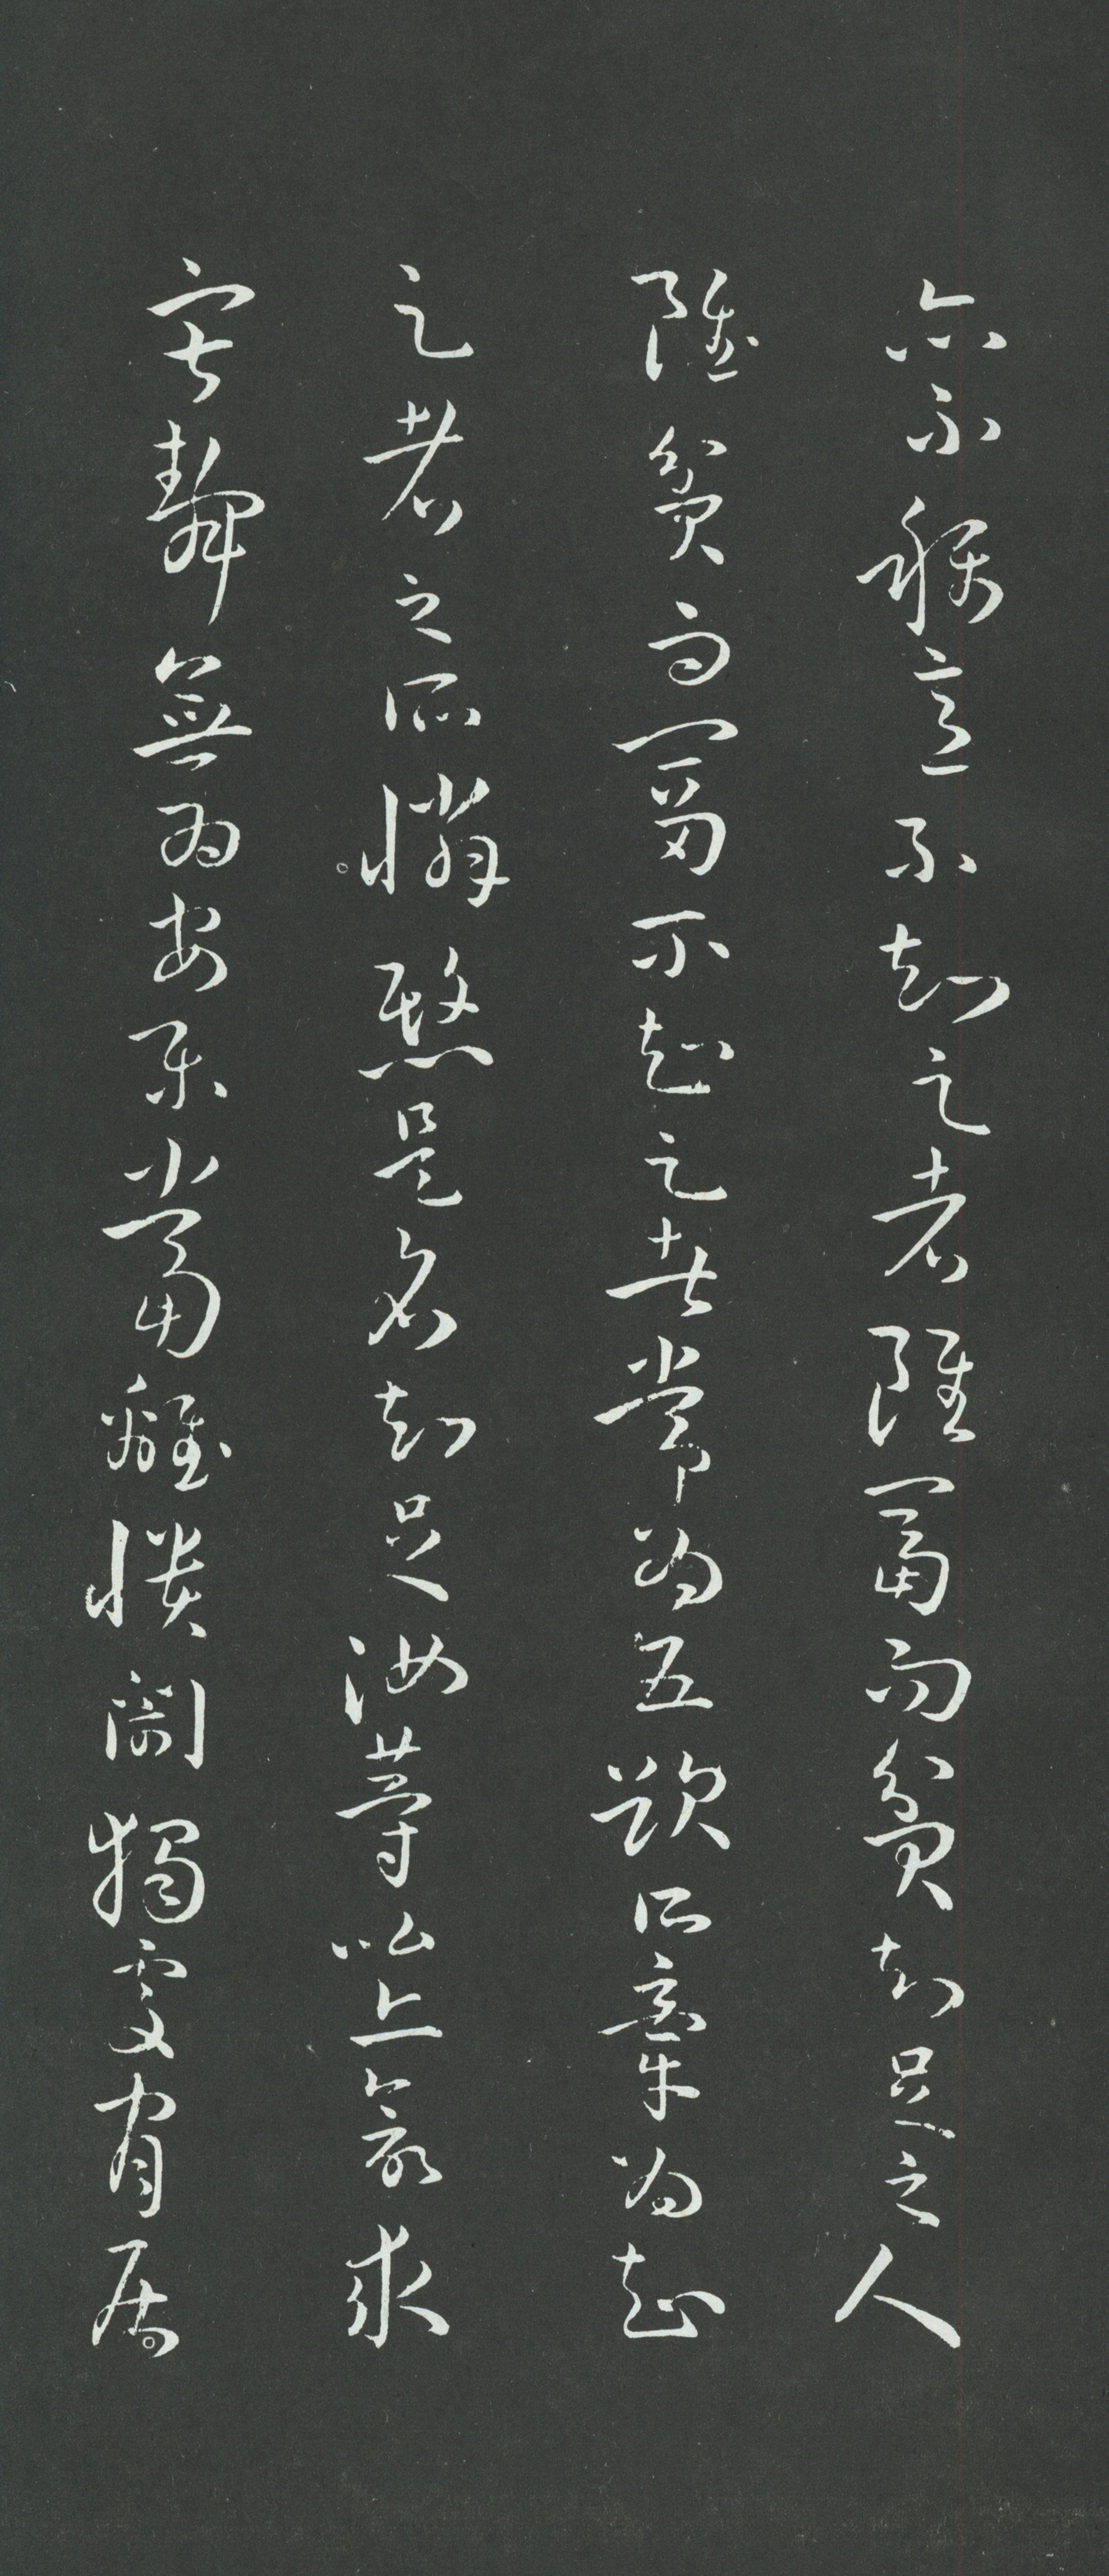 亦不稱意不知足者雖富而貧知足之人
雖貧而富不知足者常為五欲所牽為知
足者之所憐愍是名知足汝等比丘欲求
寂靜無為安樂當離憒鬧獨處閒居